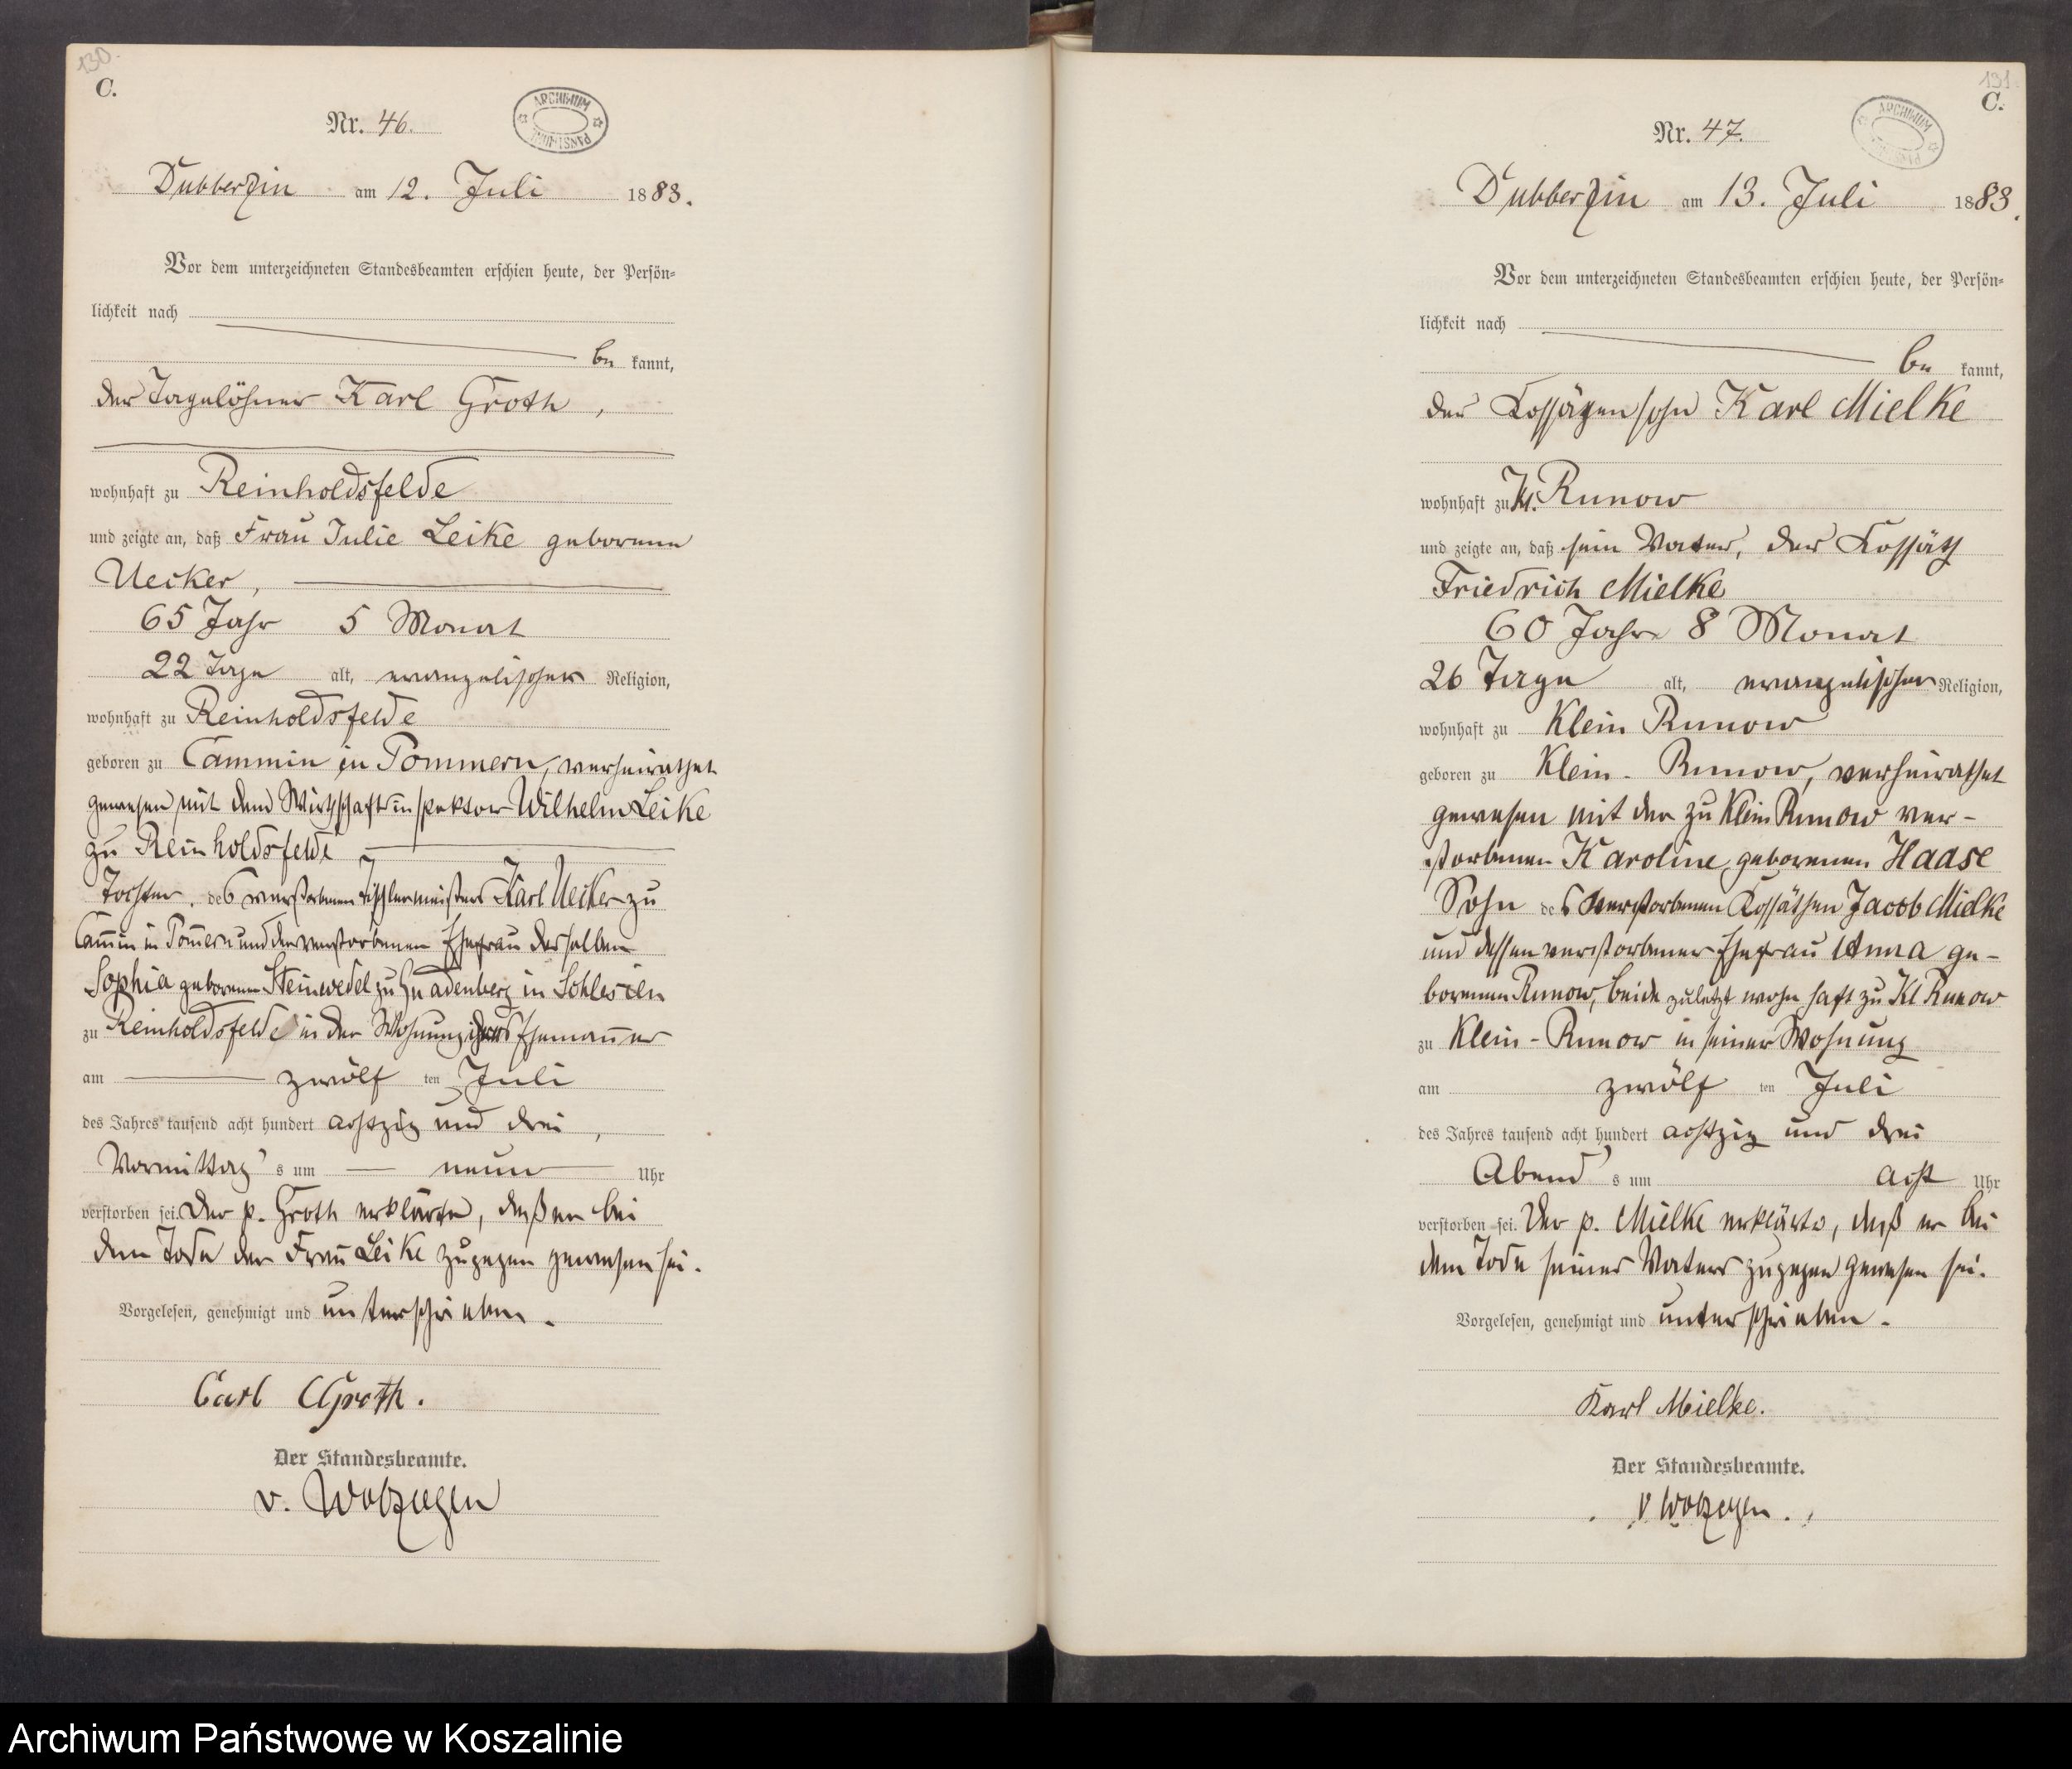 130.
C.
Nr. 46.
ARCHIWUM PAŃSTWOWE
Dubberzin am 12. Juli 1883.
Vor dem unterzeichneten Standesbeamten erschien heute, der Persön-
lichkeit nach
be kannt,
der Tagelöhner Karl Groth,
wohnhaft zu Reinholdsfelde
und zeigte an, daß Frau Julie Leike geborene
Uecker,
65 Jahr 5 Monat
22 Tage alt, evangelischer Religion,
wohnhaft zu Reinholdsfelde
geboren zu Cammin in Pommern, verheirathet
gewesen mit dem Wirthschaftsinspektor Wilhelm Leike
zu Reinholdsfelde
Tochter des verstorbenen Tischlermeisters Karl Uecker zu
Cam̄in in Pom̄ern und der verstorbenen Ehefrau desselben
Sophia geborenen Steinwedel zu Gnadenberg in Schlesien
zu Reinholdsfelde in der Wohnung ihres Eheman̄es
am zwölf ten Juli
des Jahres tausend acht hundert achtzig und drei,
Vormittag s um neun Uhr
verstorben sei. Der p. Groth erklärte, daß er bei
dem Tode der Frau Leike zugegen gewesen sei.
Vorgelesen, genehmigt und unterschrieben.
Carl Groth.
Der Standesbeamte.
v. Wolzogen
131.
C.
Nr. 47.
ARCHIWUM PAŃSTWOWE
Dubberzin am 13. Juli 1883.
Vor dem unterzeichneten Standesbeamten erschien heute, der Persön-
lichkeit nach
be kannt,
der Kossäthensohn Karl Mielke
wohnhaft zu Kl. Runow
und zeigte an, daß sein Vater, der Kossäth
Friedrich Mielke
60 Jahr 8 Monat
26 Tage alt, evangelischer Religion,
wohnhaft zu Klein Runow
geboren zu Klein-Runow, verheirathet
gewesen mit der zu Klein Runow ver-
storbenen Karoline, geborenen Haase
Sohn des verstorbenen Kossäthen Jacob Mielke
und dessen verstorbener Ehefrau Anna ge-
borenen Runow, beide zuletzt wohnhaft zu Kl Runow
zu Klein-Runow in seiner Wohnung
am zwölf ten Juli
des Jahres tausend acht hundert achtzig und drei
Abend s um acht Uhr
verstorben sei. Der p. Mielke erklärte, daß er bei
dem Tode seines Vaters zugegen gewesen sei.
Vorgelesen, genehmigt und unterschrieben.
Karl Mielke.
Der Standesbeamte.
v Wolzogen.
Archiwum Państwowe w Koszalinie